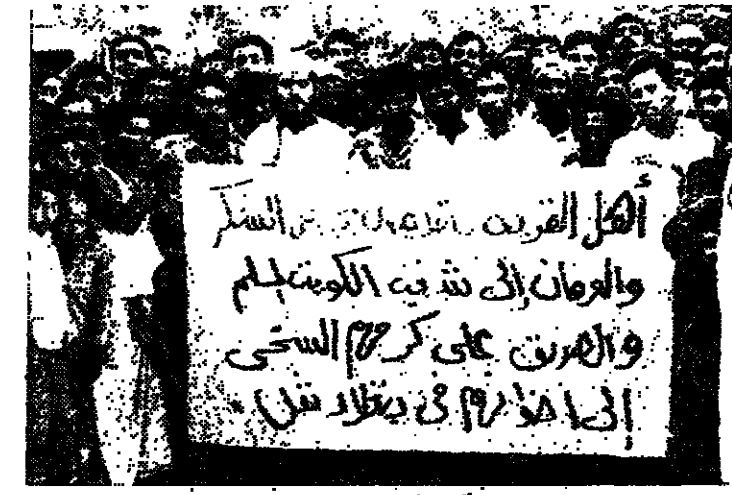 أهل القرية الشكر
والعرفان إلى شعب الكويت المسلم
والصديق على كرمهم السخي
إلى اخوانهم في بنغلادش